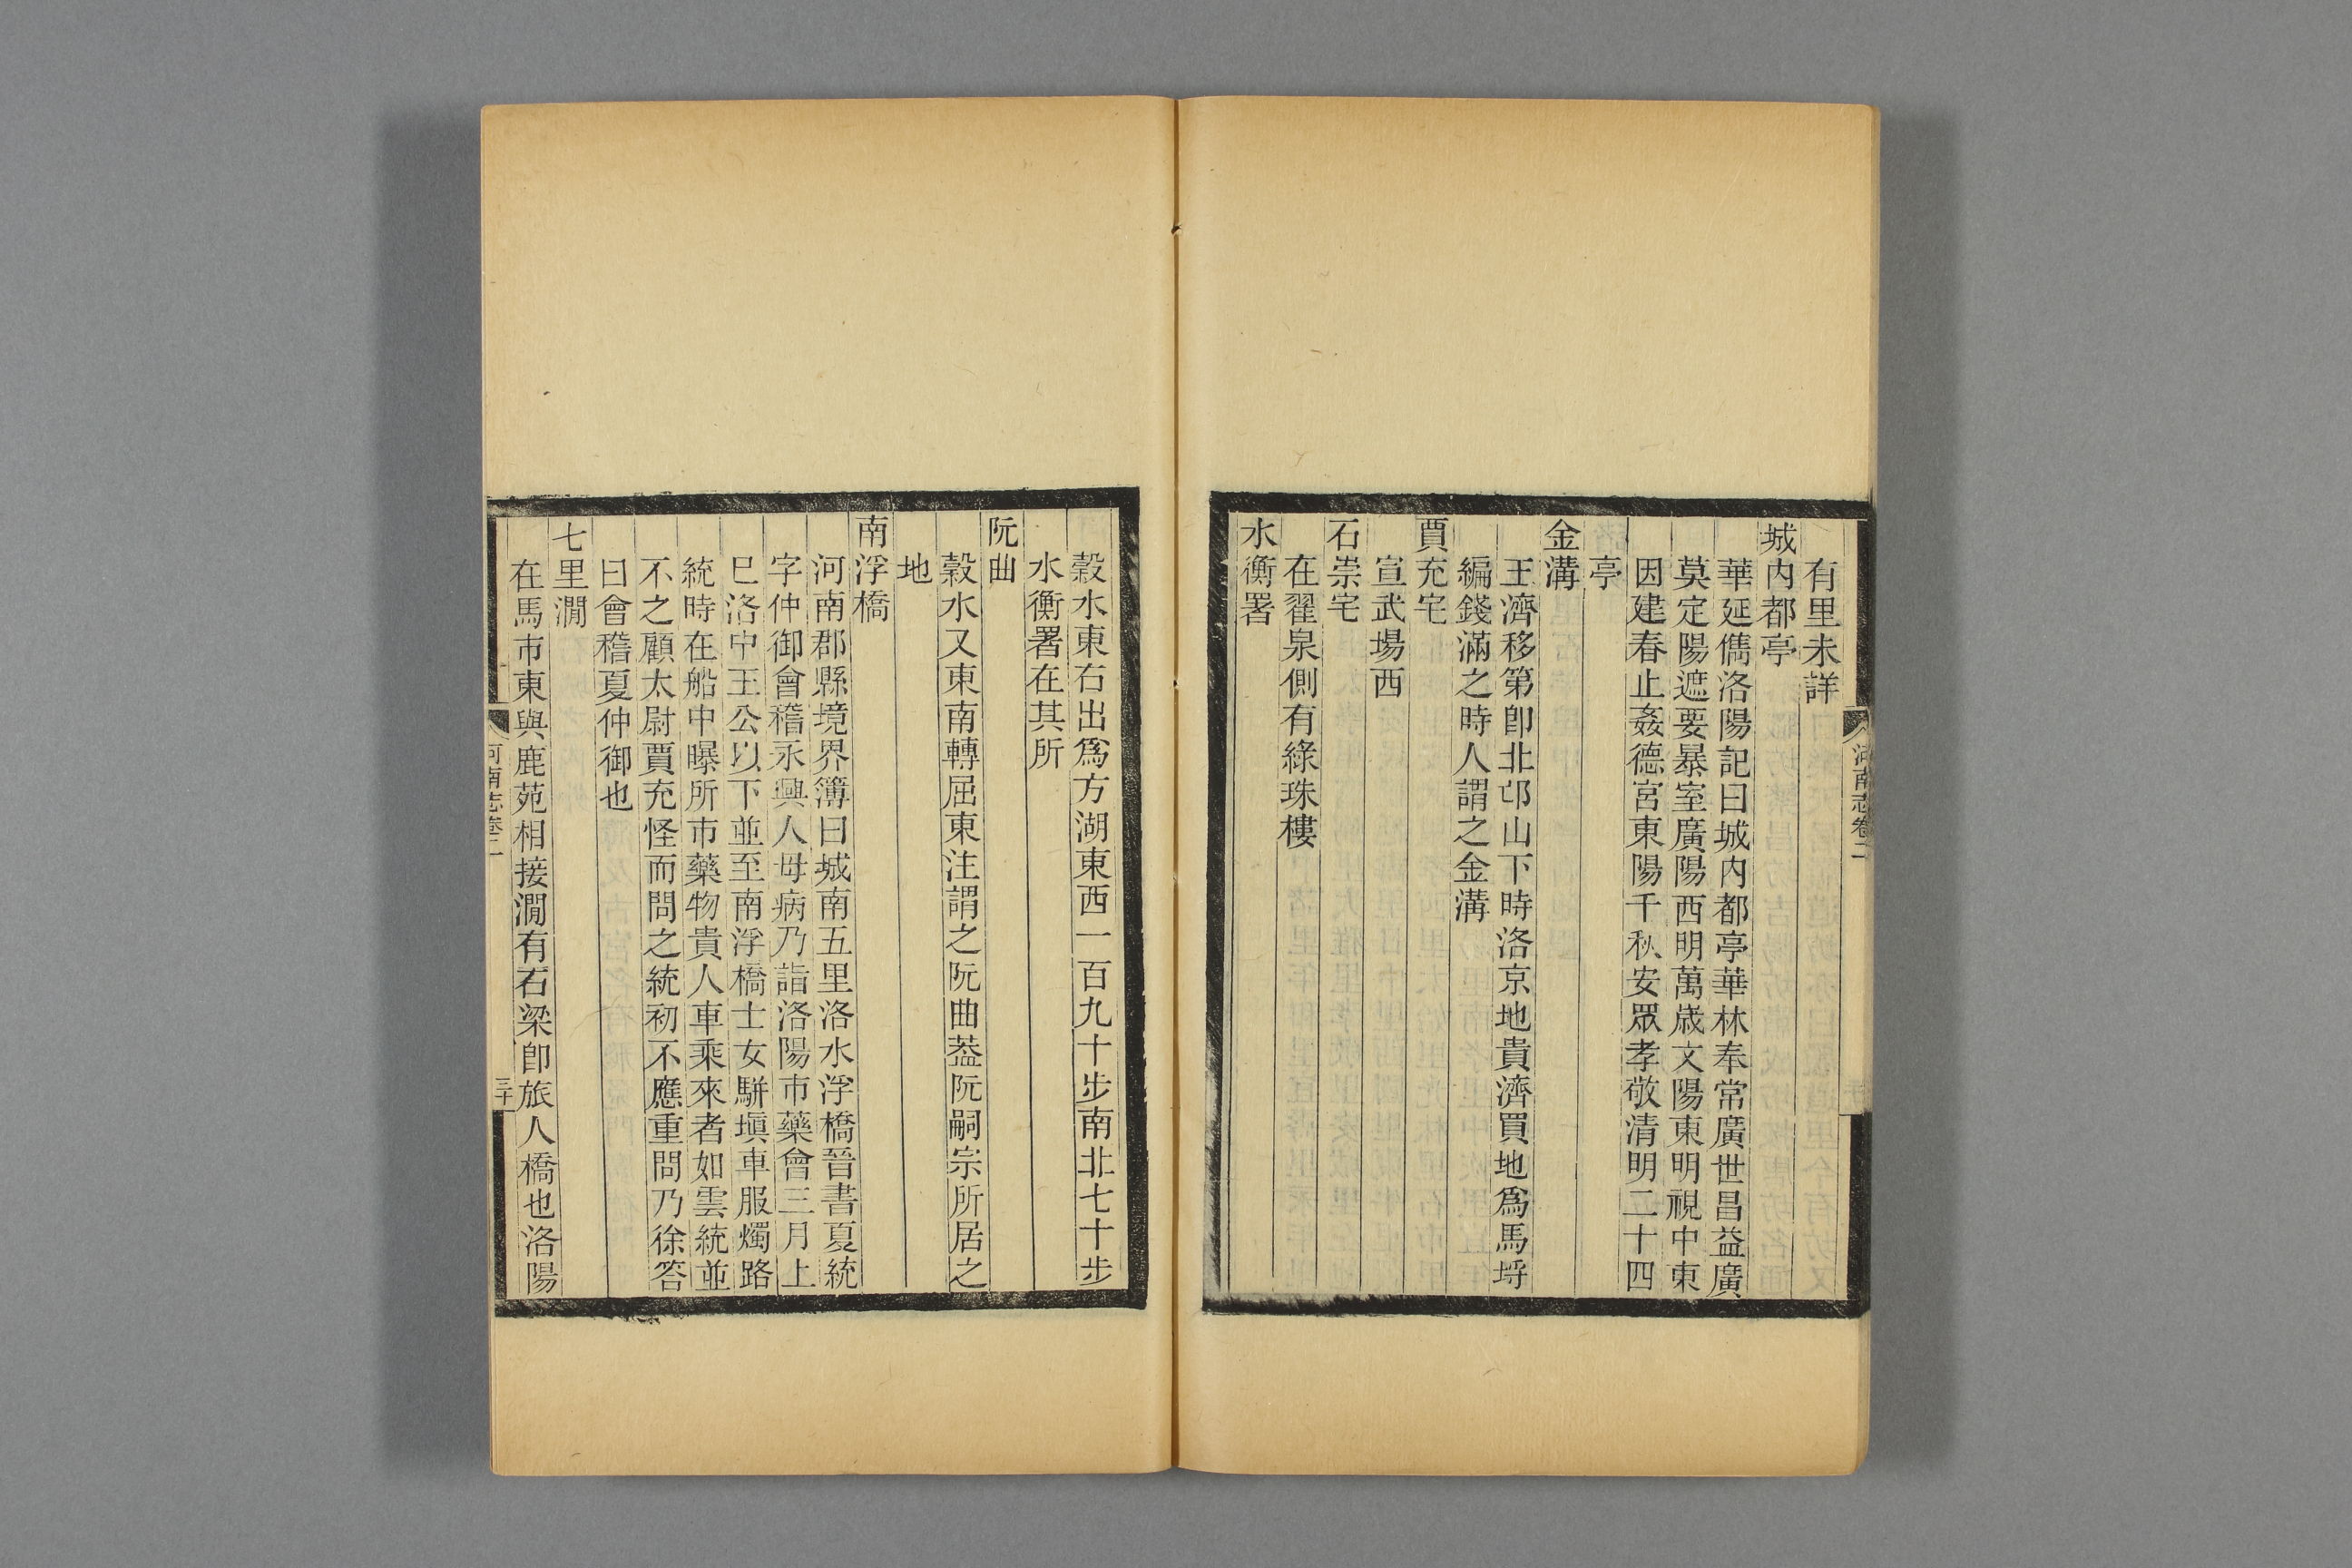 有里未詳
城内都亭
華延儁洛陽記曰城内都亭華林奉常廣世昌益廣
莫定陽遮要暴室廣陽西明萬歲文陽東明視中東
因建春止姦德宮東陽千秋安眾孝敬清明二十四
亭
金溝
王濟移第卽北邙山下時洛京地貴濟買地爲馬埒
編錢滿之時人謂之金溝
賈充宅
宣武場西
石崇宅
在翟泉側有綠珠樓
水衡署
穀水東右出爲方湖東西一百九十步南北七十步
水衡署在其所
阮曲
穀水又東南轉屈東注謂之阮曲葢阮嗣宗所居之
地
南浮橋
河南郡縣境界簿曰城南五里洛水浮橋晉書夏統
字仲御會稽永興人母病乃詣洛陽市藥會三月上
巳洛中王公以下並至南浮橋士女駢塡車服燭路
統時在船中曝所市藥物貴人車乘來者如雲統並
不之顧太尉賈充怪而問之統初不應重問乃徐答
曰會稽夏仲御也
七里澗
在馬市東與鹿苑相接澗有石梁卽旅人橋也洛陽
河南志卷二
三十